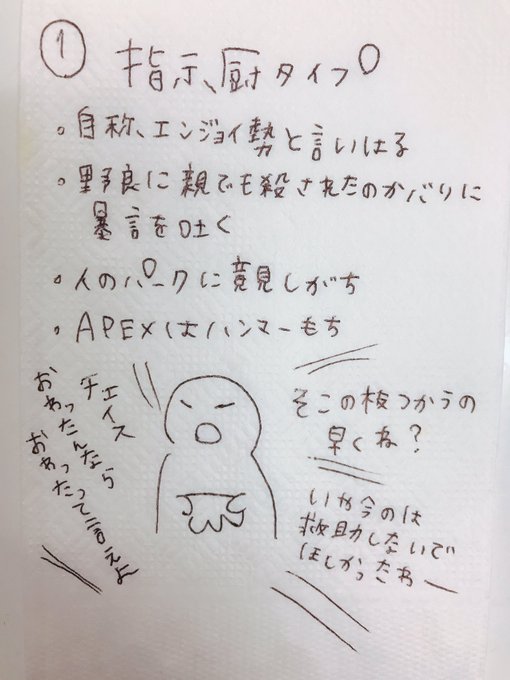 ①
指示厨タイプ
・自称、エンジョイ勢と言いはる
・野良に親でも殺されたのかバリに
暴言を吐く
・人のパークに意見しがち
・APEXはハンマーもち
チェイス
おわったんなら
おわったって言えよ
そこの板つかうの
早くね?
いや今のは
救助しないで
ほしかったわー